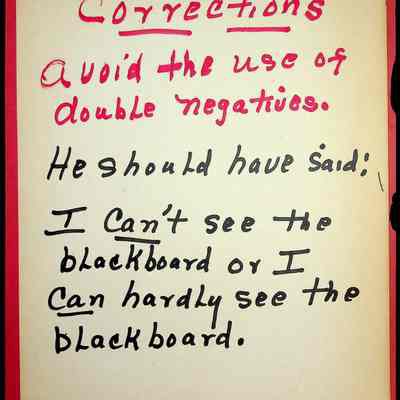 Corrections
Avoid the use of
double negatives.
He should have said:
I Can't see the
blackboard or I
Can hardly see the
blackboard.